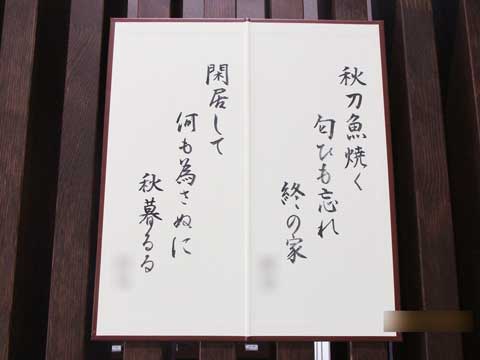 秋刀魚焼く
匂ひも忘れ
終の家
閑居して
何も為さぬに
秋暮るる